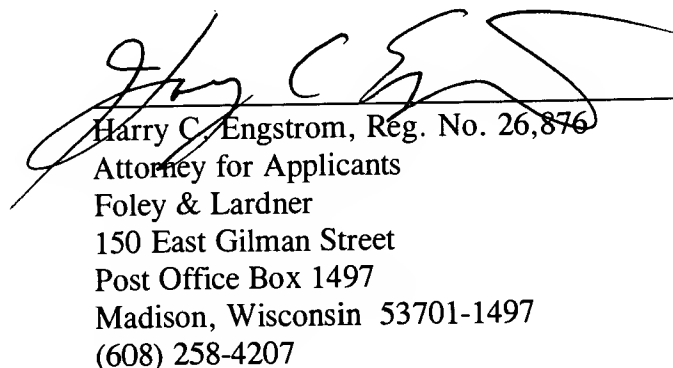 Harry C. Engstrom, Reg. No. 26,876
Attorney for Applicants
Foley & Lardner
150 East Gilman Street
Post Office Box 1497
Madison, Wisconsin 53701-1497
(608) 258-4207